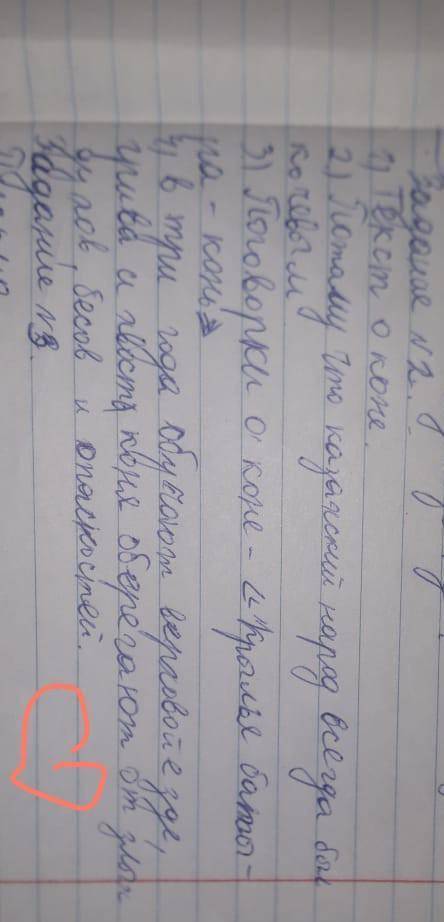 Задание №2.
1) Текст о коне.
2) Потому что казахский народ всегда был
кочевым
3) Поговорки о коне - "Крылья баты-
ра - конь"
4) в три года обучают верховой езде,
грива и хвост коня оберегают от злых
духов, бесов и опасностей.
Задание №3.